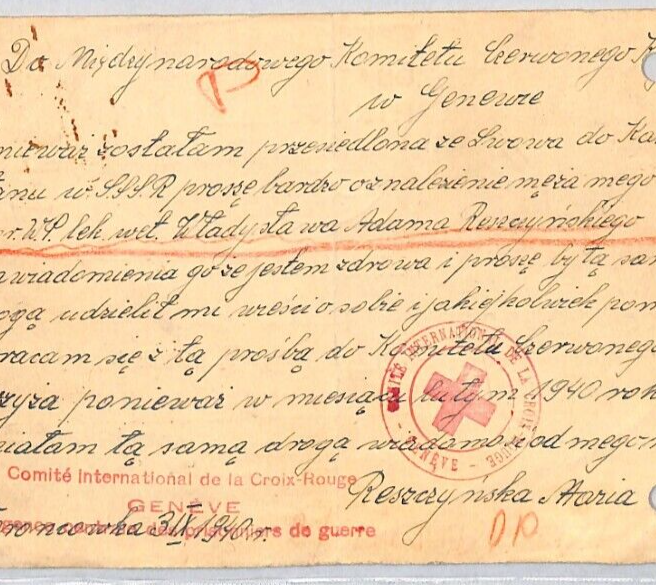 Do Międzynarodowego Komitetu Czerwonego K
w Genewie
nieważ zostałam przesiedlona ze Lwowa do Ka
anu w S.S.S.R proszę bardzo o znalezienie męża mego
or. W.P. lek. wet. Władysława Adama Reszczyńskiego
awiadomienia go że jestem zdrowa i proszę by tą sam
ogą udzielił mi wieści o sobie i jakiejkolwiek pom
racam się z tą prośbą do Komitetu Czerwonego
zyża ponieważ w miesiącu lutym 1940 rok
miałam tą samą drogą wiadomo od mego m
Reszczyńska Maria
3/IX 1940 r.
Comité International de la Croix-Rouge
GENÈVE
Agence centrale des prisonniers de guerre
COMITÉ INTERNATIONAL DE LA CROIX ROUGE
- GENÈVE -
P
D.P